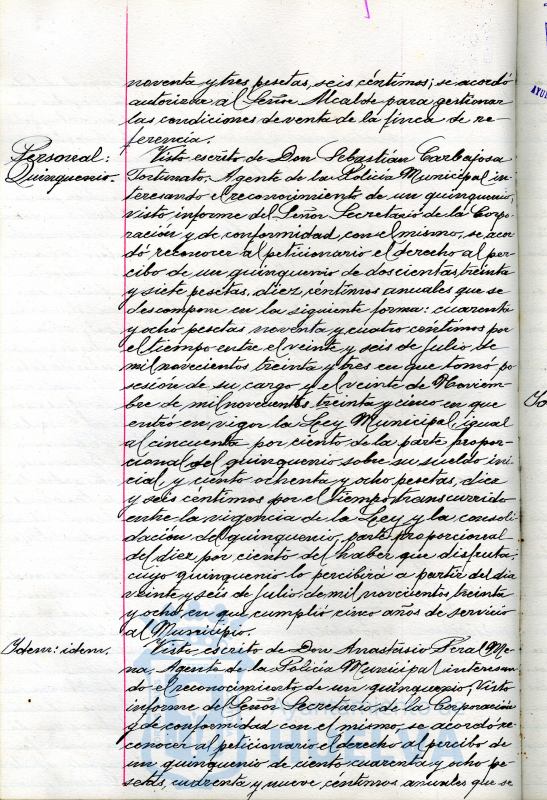 noventa y tres pesetas, seis céntimos; se acordó
autorizar al Señor Alcalde para gestionar
las condiciones de venta de la finca de re-
ferencia.
Personal:
Quinquenio.
Visto escrito de Don Sebastián Carbajosa
Fortunato, Agente de la Policía Municipal in-
teresando el reconocimiento de un quinquenio,
visto informe del Señor Secretario de la Corpo-
ración y de conformidad con el mismo, se acor-
dó reconocer al peticionario el derecho al per-
cibo de un quinquenio de doscientas treinta
y siete pesetas, diez céntimos anuales que se
descompone en la siguiente forma: cuarenta
y ocho pesetas noventa y cuatro centimos por
el tiempo entre el veinte y seis de Julio de
mil novecientos treinta y tres en que tomó po-
sesión de su cargo y el veinte de Noviem-
bre de mil novecientos treinta y cinco en que
entró en vigor la Ley Municipal, igual
al cincuenta por ciento de la parte propor-
cional del quinquenio sobre su sueldo ini-
cial, y ciento ochenta y ocho pesetas, diez
y seis céntimos por el tiempo transcurrido
entre la vigencia de la Ley y la consoli-
dación del quinquenio, parte proporcional
del diez por ciento del haber que disfruta;
cuyo quinquenio lo percibirá a partir del día
veinte y seis de Julio de mil novecientos treinta
y ocho en que cumplió cinco años de servicio
al Municipio.
Idem: idem.
Visto escrito de Don Anastasio Peral Me-
na, Agente de la Policía Municipal interesan-
do el reconocimiento de un quinquenio, Visto
informe del Señor Secretario de la Corporación
y de conformidad con el mismo, se acordó re-
conocer al peticionario el derecho al percibo de
un quinquenio de ciento cuarenta y ocho pe-
setas, cuarenta y nueve céntimos anuales que se
HUELVA